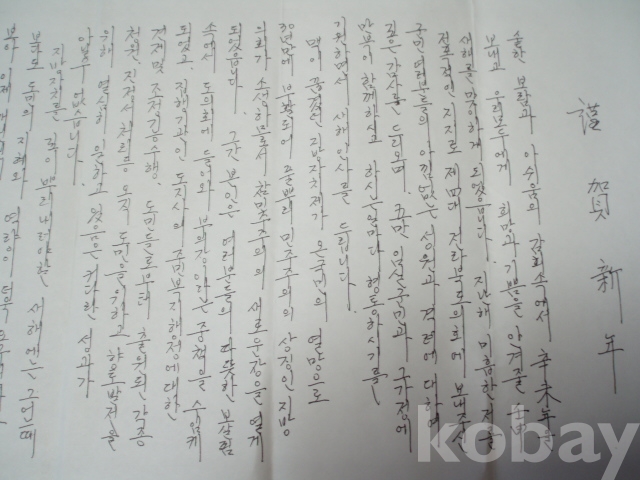 謹賀新年
숱한 보람과 아쉬움의 감회속에서 辛未年을
보내고 여러분에게 희망과 기쁨을 안겨줄
새해를 맞이하게 되었습니다. 지난해 미흡한 저를
적극적인 지지로 제4대 전라북도의회에 보내주신
국민 여러분들의 아낌없는 성원과 격려에 대해
깊은 감사를 드리오며 금년 임신년 가정에
만복이 함께하시고 하시는 일마다 형통하시기를
기원하면서 새해인사를 드립니다.
맥이 끊겼던 지방자치제가 온국민의 열망으로
30년만에 부활되어 풀뿌리 민주주의의 상징인 지방
의회가 소생하므로서 참 민주주의의 새로운 장을 열게
되었습니다. 그간 본인은 여러분들의 따뜻한 보살핌
속에서 도의회에 들어와 부의장이라는 중책을 수임케
되었고, 집행기관인 도지사의 주민복지행정에 대한
견제및 조정기능수행, 도민들로부터 출원된 각종
청원, 진정서 처리등 오직 도민을 위하고 향토발전을
위해 열심히 일하고 있음은 커다란 성과가
아닐수 없습니다.
지방자치를 깊이 뿌리내려야할 새해에는 그 어느때
보다 도민의 지혜와 역량이